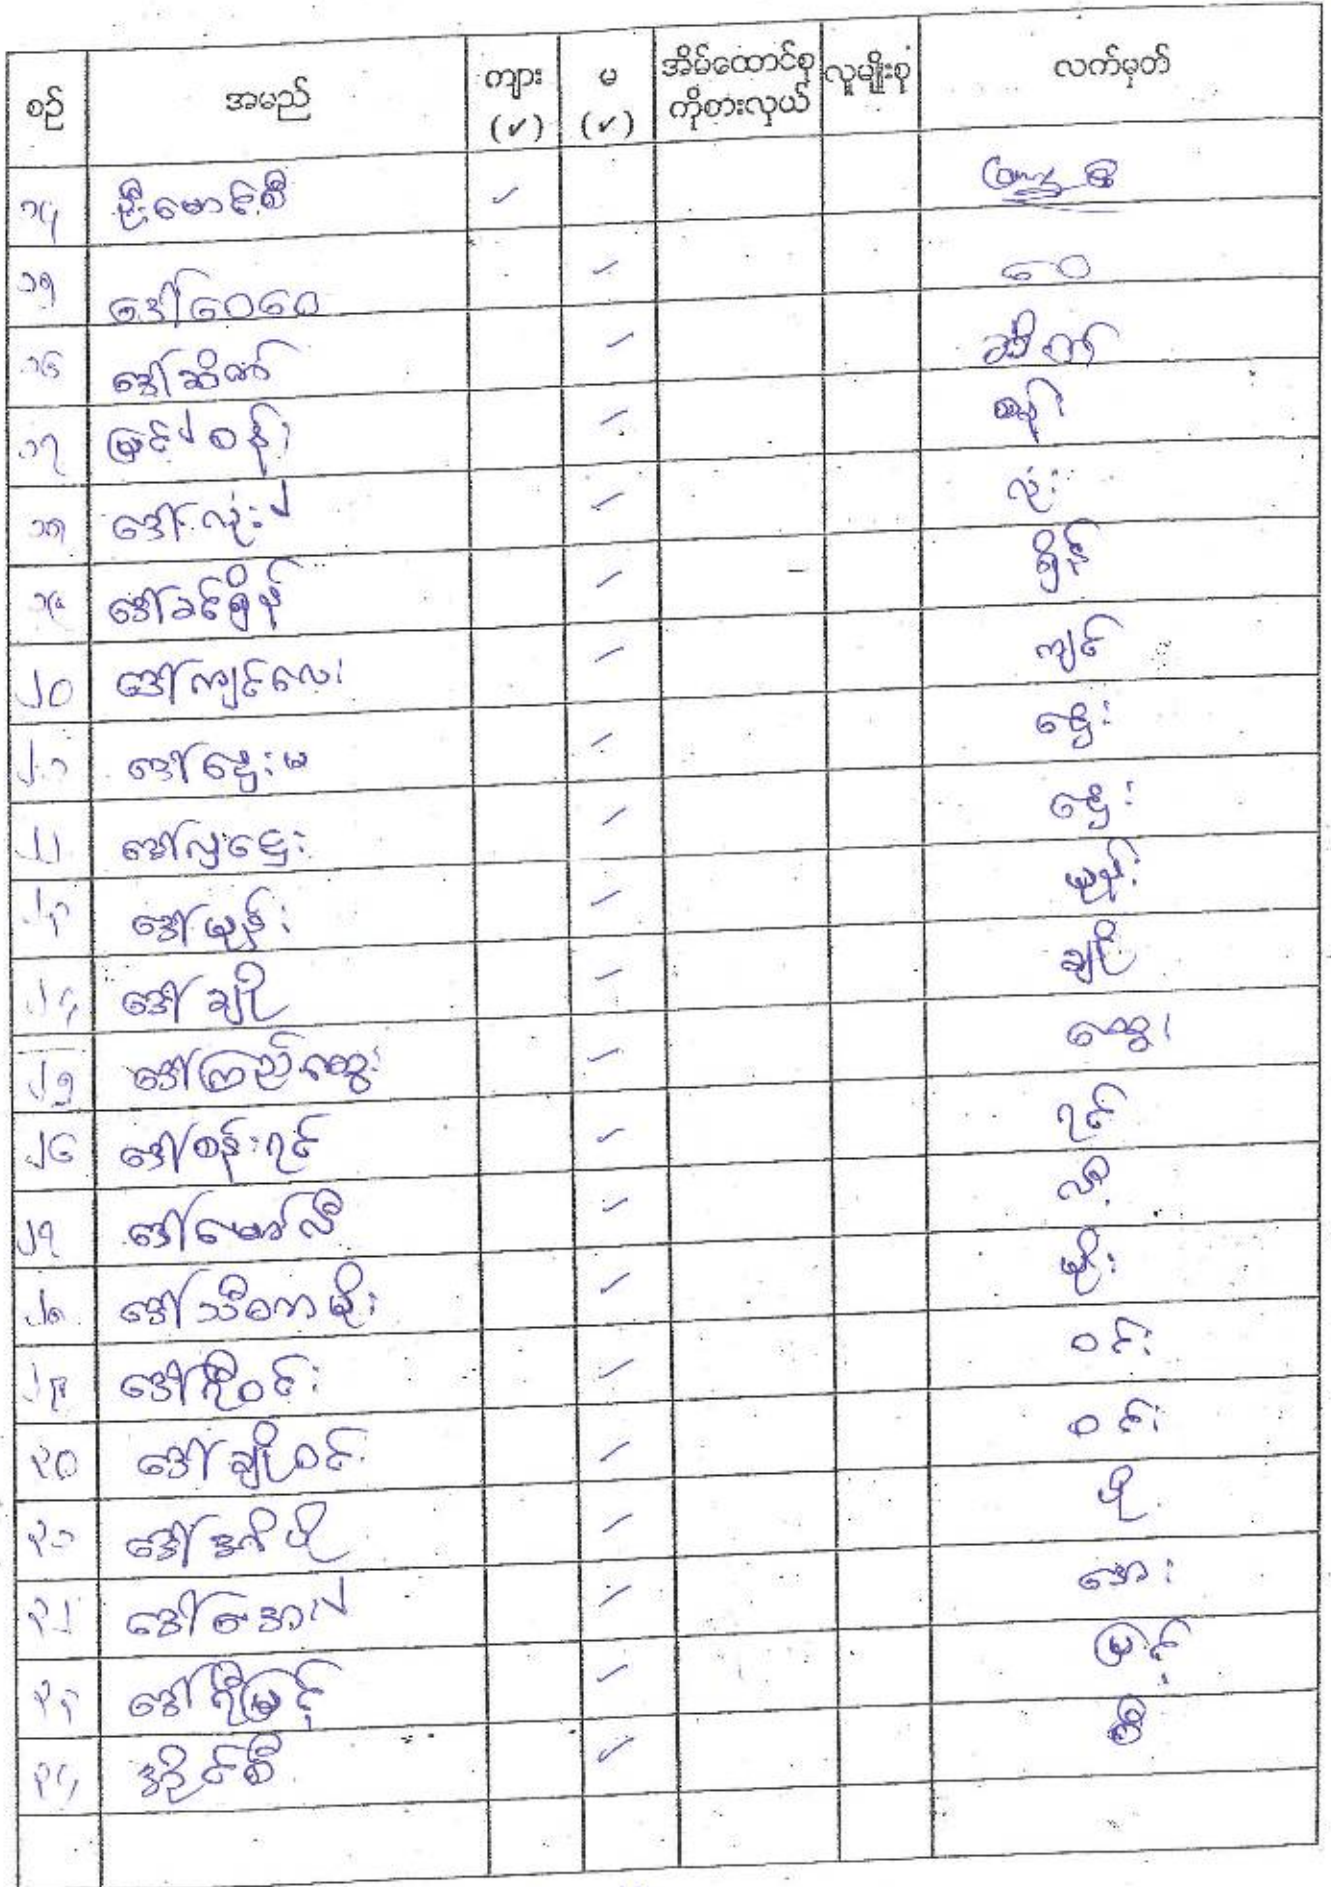 စဉ် အမည် ကျား (✓) မ (✓) အိမ်ထောင်စု ကိုစားလှယ် လူမျိုးစု လက်မှတ်
၁၄ ဦးမောင်စီ ✓
၁၅ ဒေါ်ဝေဝေ ✓ ဝေ
၁၆ ဒေါ်ဆိတ် ✓ ဆိတ်
၁၇ မြင့်စန်း ✓ စန်း
၁၈ ဒေါ်လုံး ✓ လုံး
၁၉ ဒေါ်ခင်ရှိန် ✓ ရှိန်
၂၀ ဒေါ်ကျင်လေး ✓ ကျင်
၂၁ ဒေါ်ဌေးမ ✓ ဌေး
၂၂ ဒေါ်လှဌေး ✓ ဌေး
၂၃ ဒေါ်မွန်း ✓ မွန်း
၂၄ ဒေါ်ချို ✓ ချို
၂၅ ဒေါ်ကြည်ထွေး ✓ ထွေး
၂၆ ဒေါ်စန်းရင် ✓ ရင်
၂၇ ဒေါ်မော်လီ ✓ လီ
၂၈ ဒေါ်သီတာမိုး ✓ မိုး
၂၉ ဒေါ်ဝင်း ✓ ဝင်း
၃၀ ဒေါ်ချိုဝင်း ✓ ဝင်း
၃၁ ဒေါ် ပို ✓ ပို
၃၂ ဒေါ်အေး ✓ အေး
၃၃ ဒေါ် မြင့် ✓ မြင့်
၃၄ အိုင်စီ ✓ စီ